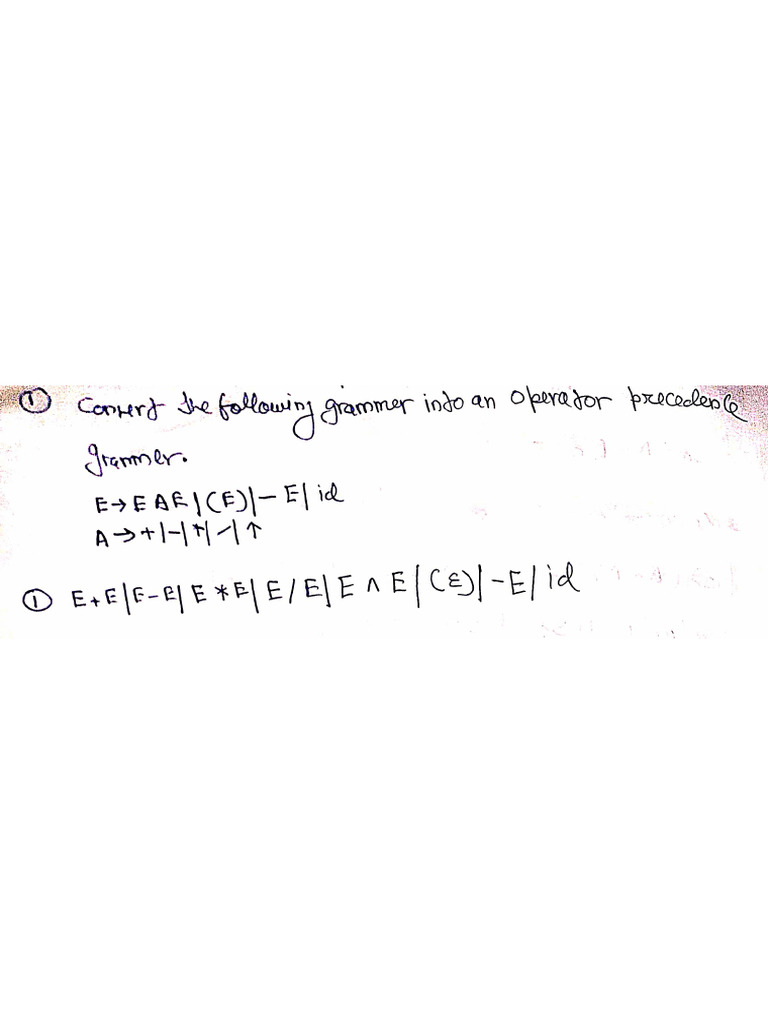 ① Convert the following grammer into an operator precedence
grammer.
E→EAE|(E)|-E|id
A→+|-|*|/|↑
① E+E|E-E|E*E|E/E|E∧E|(E)|-E|id